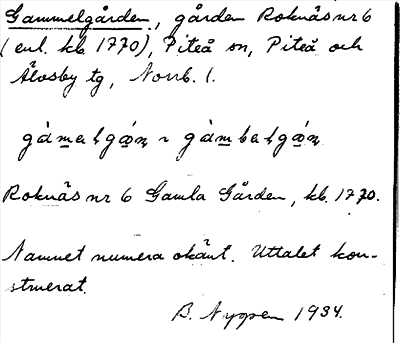 Gammelgården, gården Roknäs nr 6
(enl. kb 1770), Piteå sn, Piteå och
Älvsby tg, Norrb. l.
Roknäs nr 6 Gamla Gården, kb. 1770.
Namnet numera okänt. Uttalet kon-
struerat.
B. Nygren 1934.